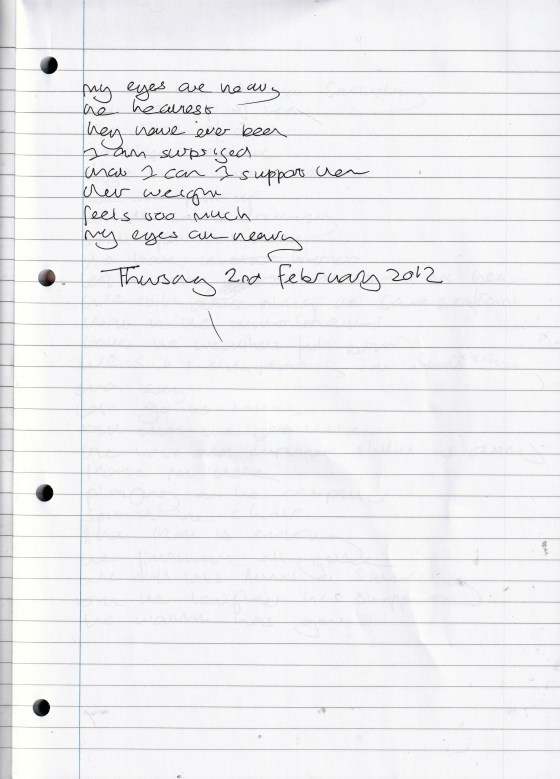 my eyes are heavy
the heaviest
they have ever been
I am surprised
that I can I support them
their weight
feels too much
my eyes are heavy
Thursay 2nd February 2012